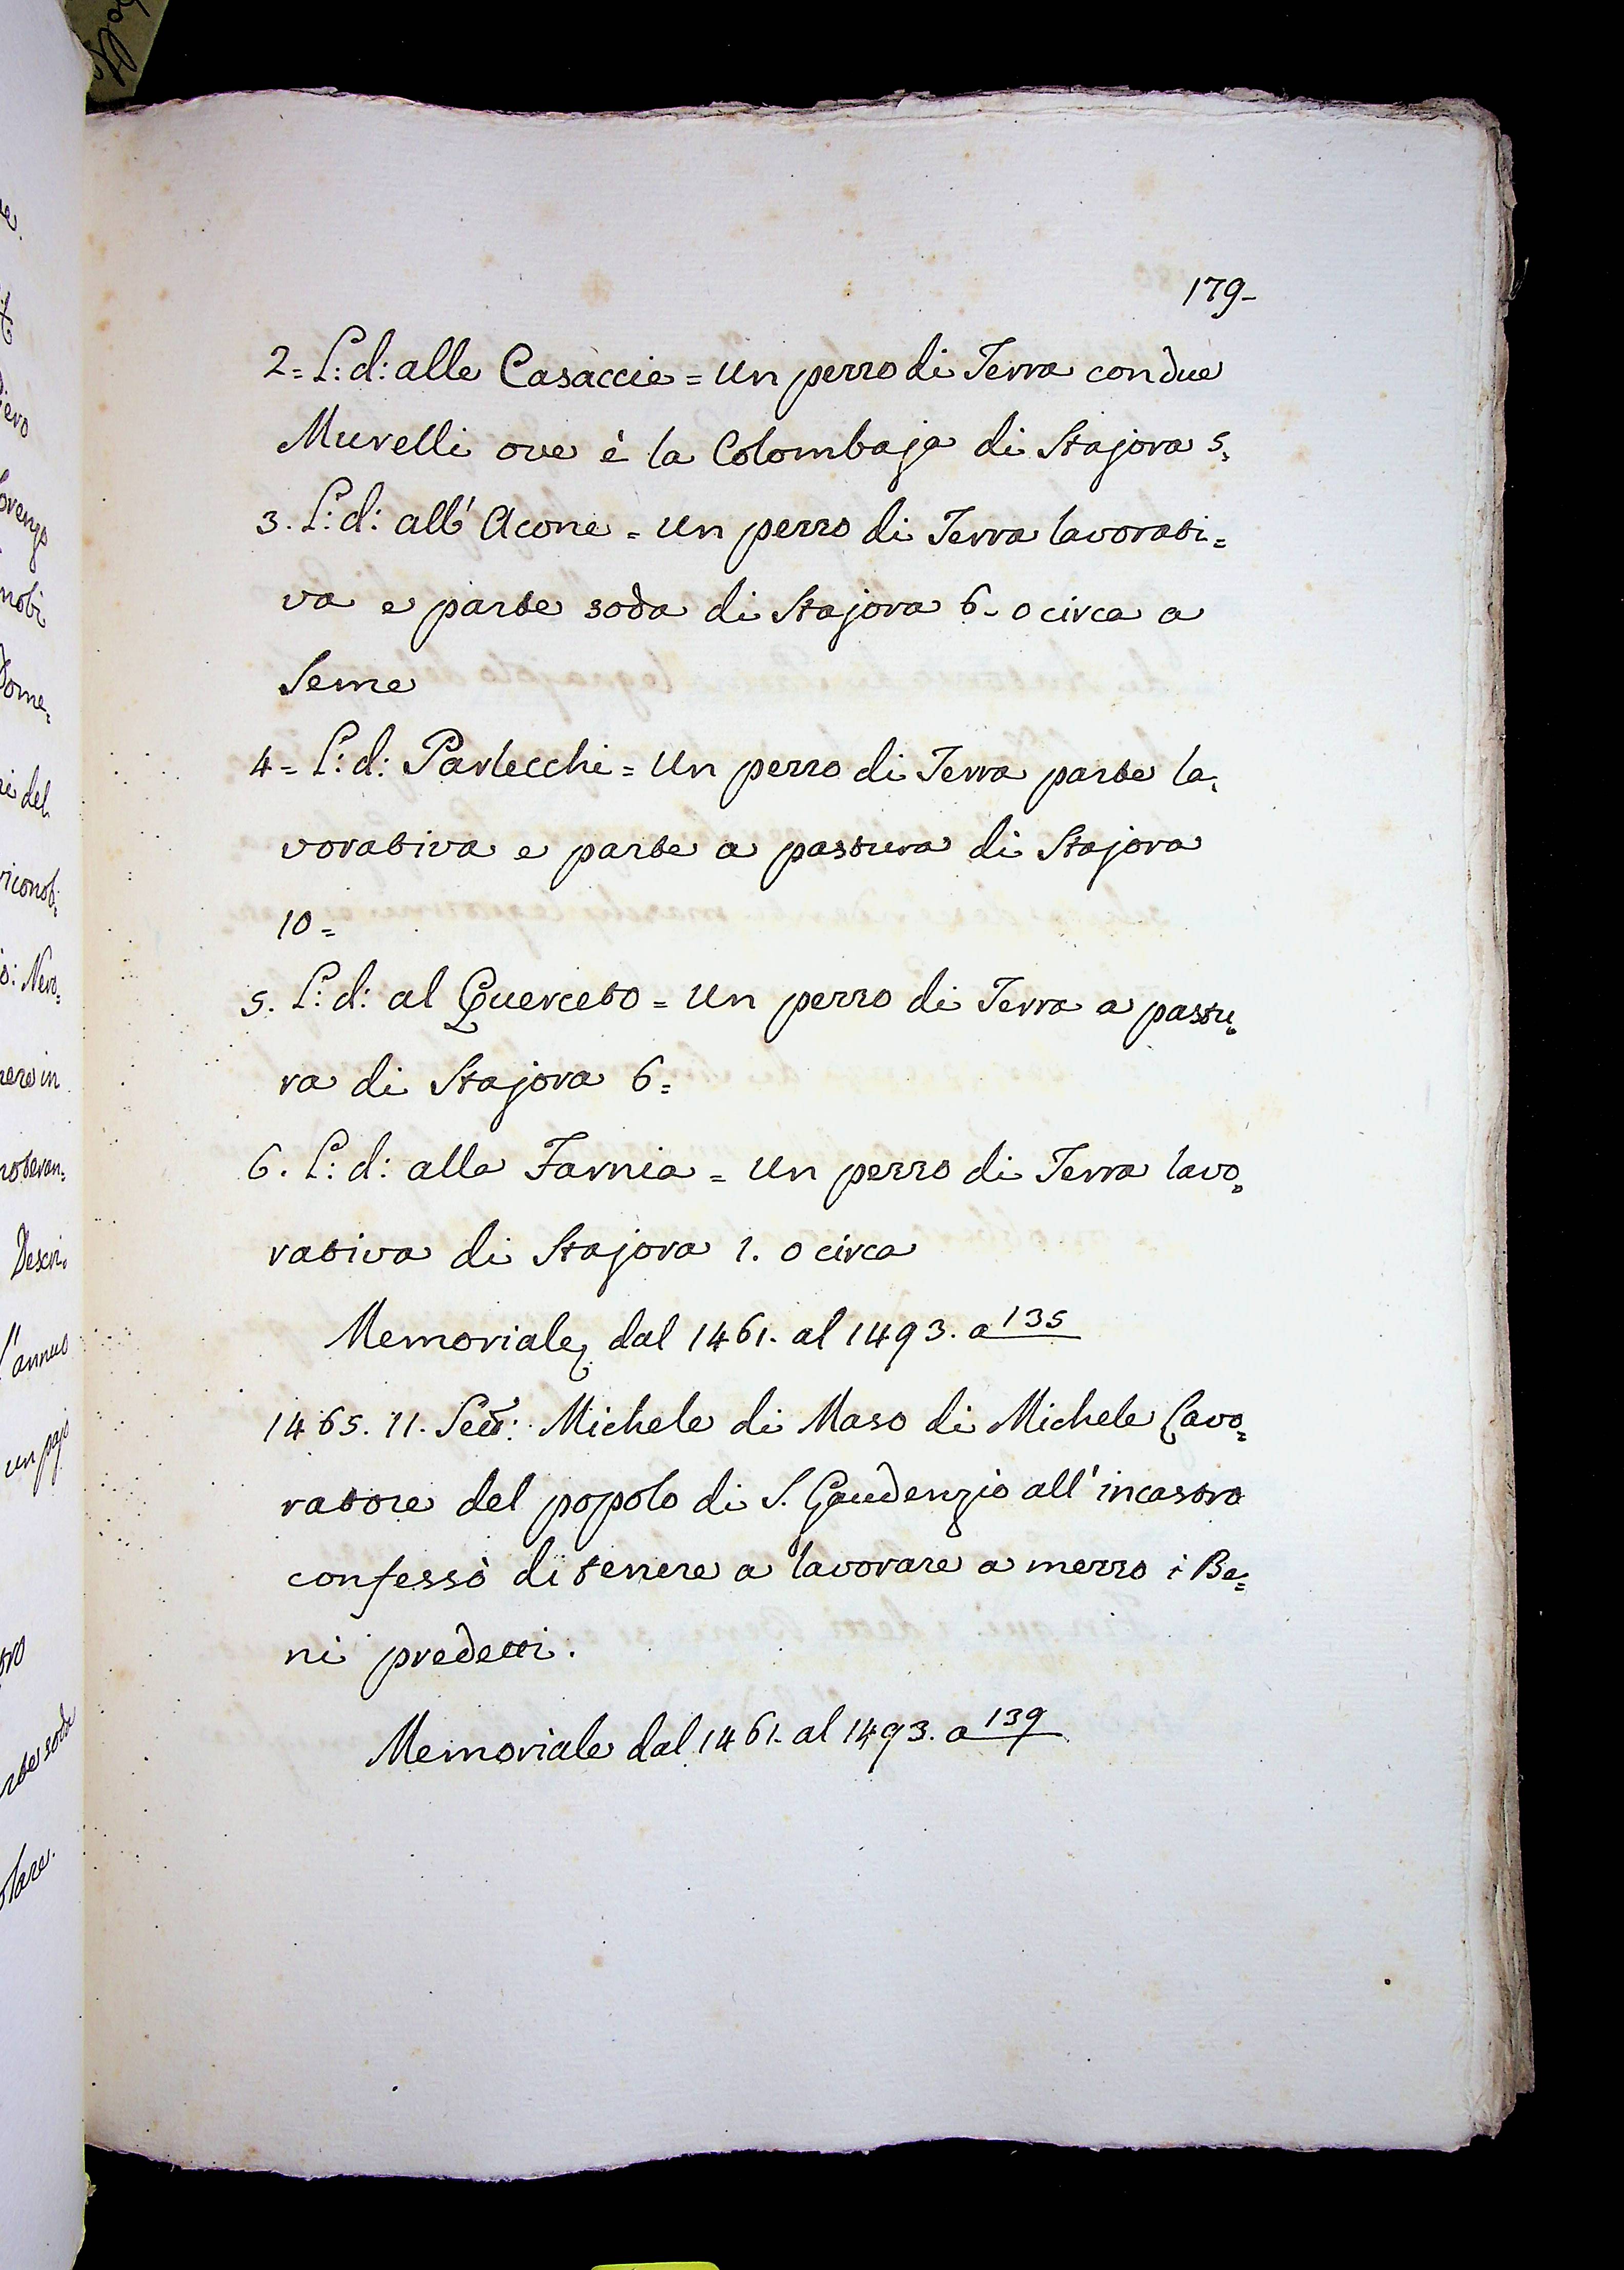 179-
2= L: d: alle Casaccie = Un pezzo di Terra con due
Murelli ove è la Colombaja di Stajora 5.
3. L: d: all' Acone = Un pezzo di Terra lavorati=
va e parte soda di Stajora 6- o circa a
Seme
4= L: d: Parlecchi = Un pezzo di Terra parte la=
vorativa e parte a pastura di Stajora
10=
5. L: d: al Querceto = Un pezzo di Terra a pastu=
ra di Stajora 6=
6. L: d: alla Farnia = Un pezzo di Terra lavo=
rativa di Stajora 1. o circa
Memoriale dal 1461. al 1493. a 135
1465. 11. Michele di Maso di Michele Lavo=
ratore del popolo di S. Gaudenzio all' incastro
confessò di tenere a lavorare a mezzo i Be=
ni predetti.
Memoriale dal 1461. al 1493. a 139